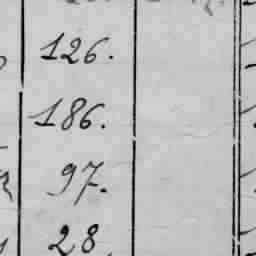 126.
186.
97.
28.